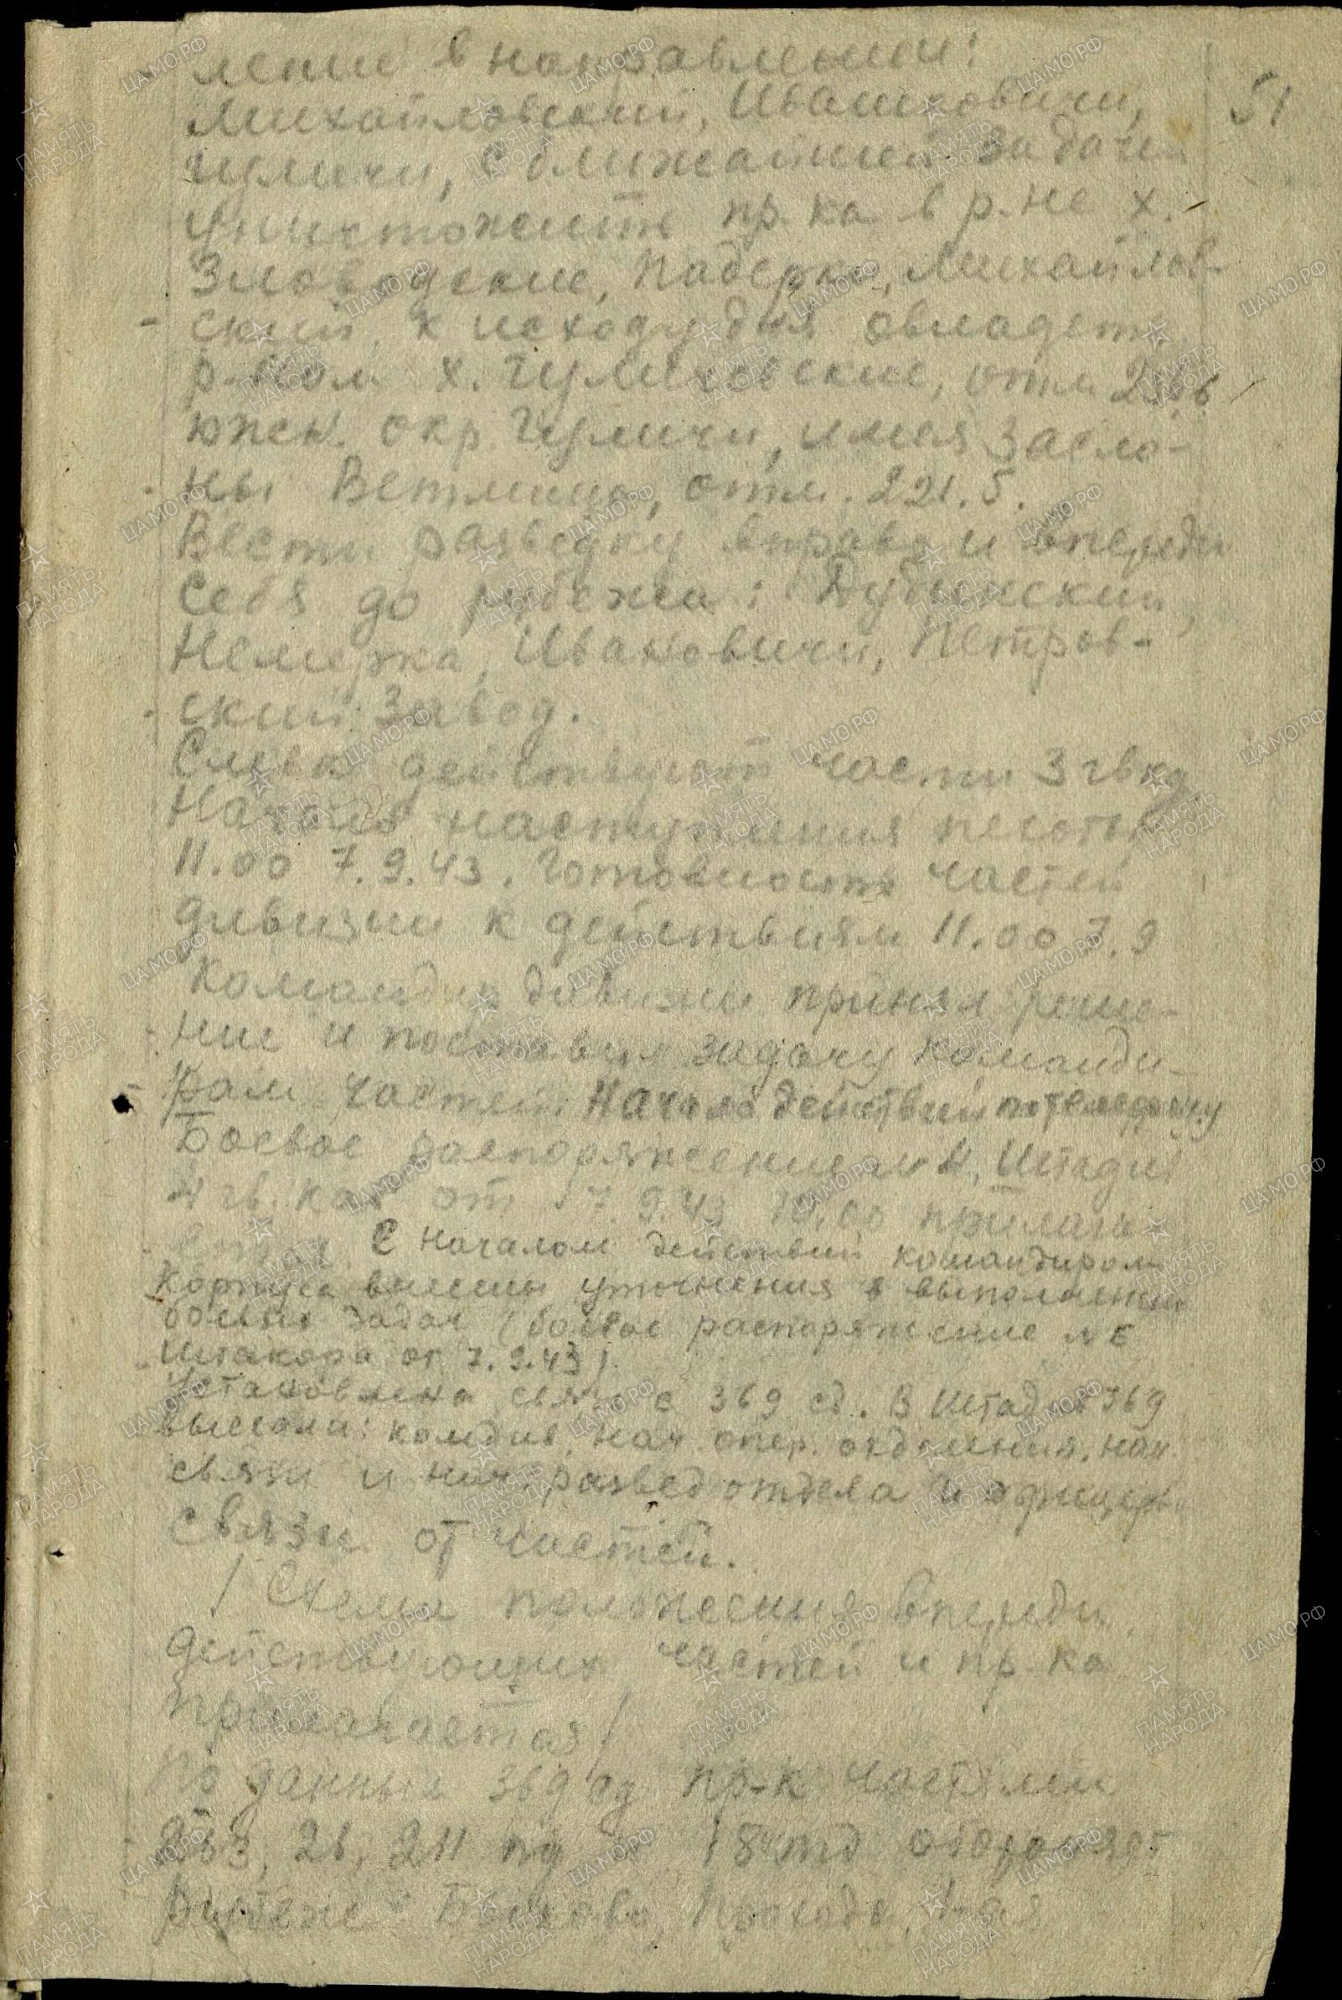 ление в направлении:
51
Михайловский, Ивашковичи,
Гуличи, с ближайшей задачей
уничтожить пр-ка в р-не х.
Зловодские, Падерки, Михайлов-
ский, к исходу дня овладеть
р-ном х. Гулиховские, отм.
южн. окр. Гуличи, имея засло-
ны Ветлица, отм. 221.5.
Вести разведку вправо и впереди
себя до рубежа: Дубинский,
Немерка, Ивановичи, Петров-
ский завод.
Слева действуют части 3 гв кд.
Начало наступления пехоты
11.00 7.9.43. Готовность частей
дивизии к действиям 11.00 7.9
Командир дивизии принял реше-
ние и поставил задачу команди-
рам частей. Начало действий по телефону
Боевое распоряжение Штадив
4 гв. кав от 7.9.43 10.00 прилага-
ется. С началом действий командиром
корпуса внесены уточнения в выполнении
боевых задач (боевое распоряжение
Штакора от 7.9.43).
Установлена связь с 369 сд. В Штадив 369
выехали: комдив, нач. опер. отделения, нач.
связи и нач. разведотдела и офицеры
связи от частей.
/ Схема положения впереди
действующих частей и пр-ка
прилагается /
По данным 369 сд пр-к частями
26, 211 пд и 18 тд обороняет
рубеж: Быхово,